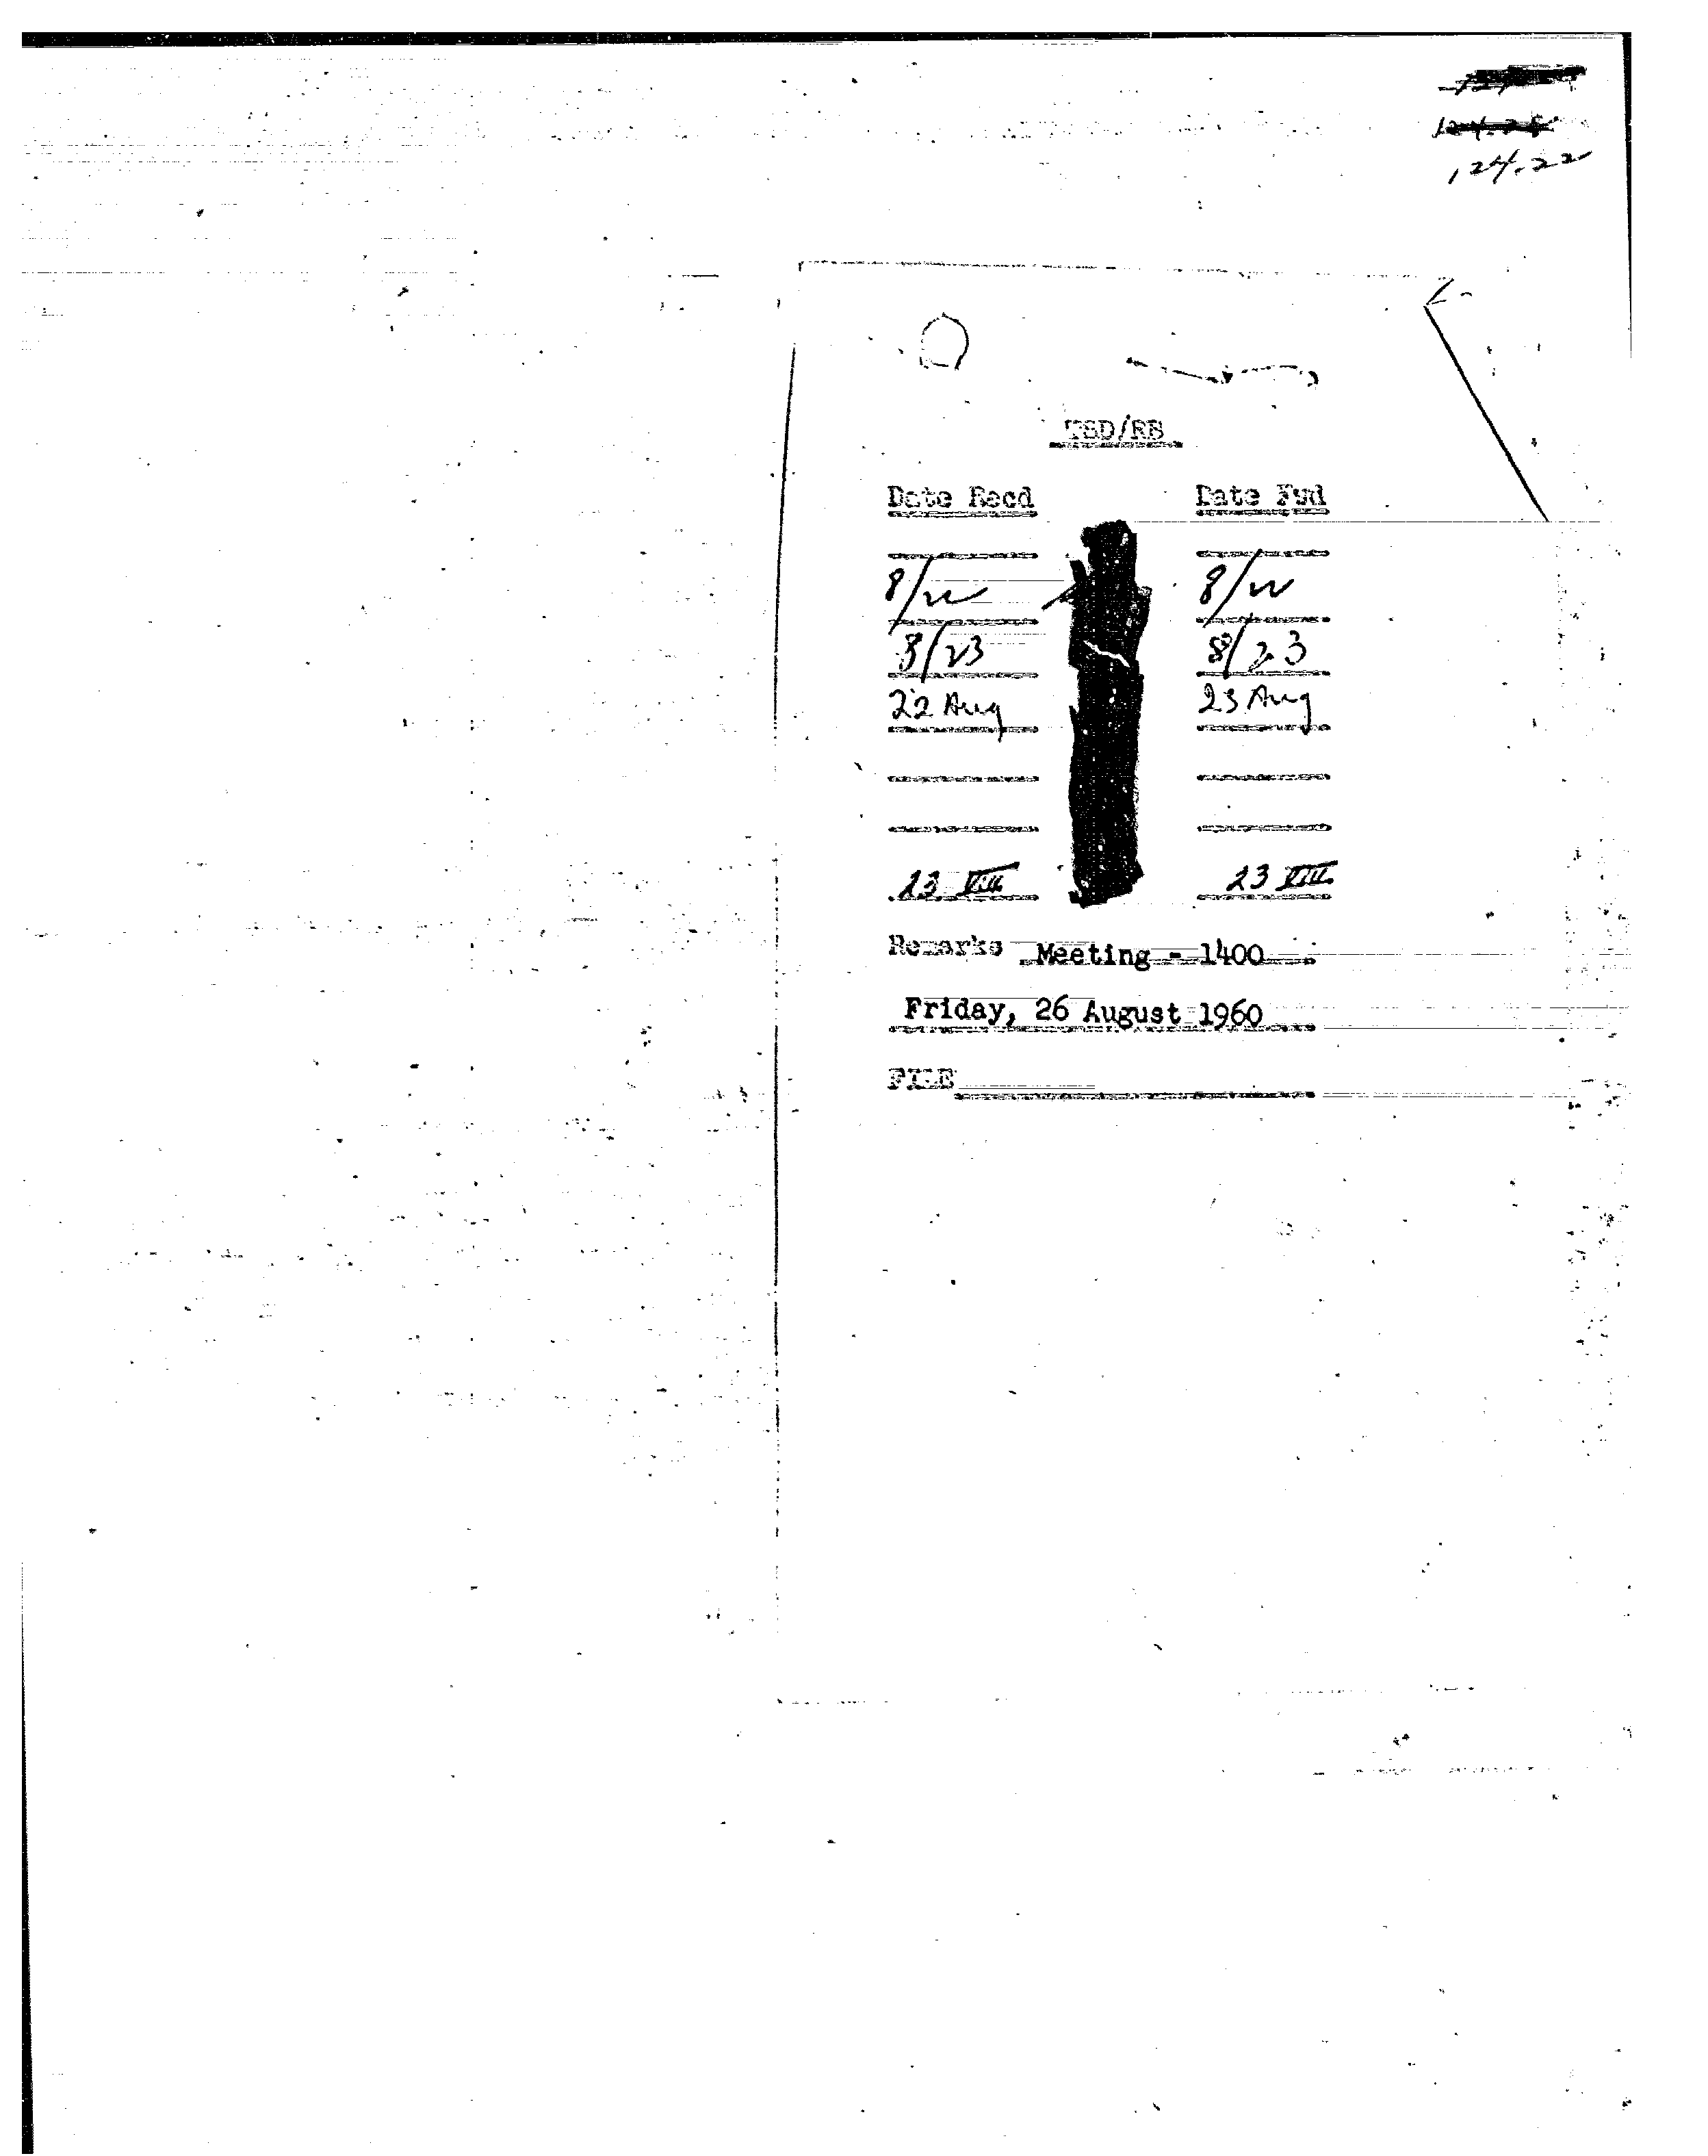 124.22
TSD/RB
Date Recd Date Fwd
8/22 8/22
8/23 8/23
22 Aug 23 Aug
23 VIII 23 VIII
Remarks Meeting - 1400
Friday, 26 August 1960
FILE